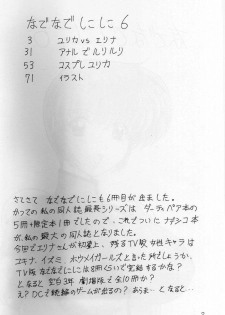 なでなでにしに6
3 ユリカ vs エリナ
31 アナルでルリルリ
53 コスプレユリカ
71 イラスト
さてさて なでなでにしにも6冊目が出ました。
かつての私の同人誌 最長シリーズは ダーティペア本の
5冊+限定本1冊でしたので、これでついに ナデシコ本
が、私の最大の同人誌となりました。
今回でエリナさんが初登上、残るTV版女性キャラは
ユキナ、イズミ、ホウメイガールズと言った所でしょうか、
TV版 なでなでにしには8冊くらいで完結するかな?
となると 翌白3年 劇場版で全10冊か?
え? DCで続編のゲームが出るの? あうま… となると…